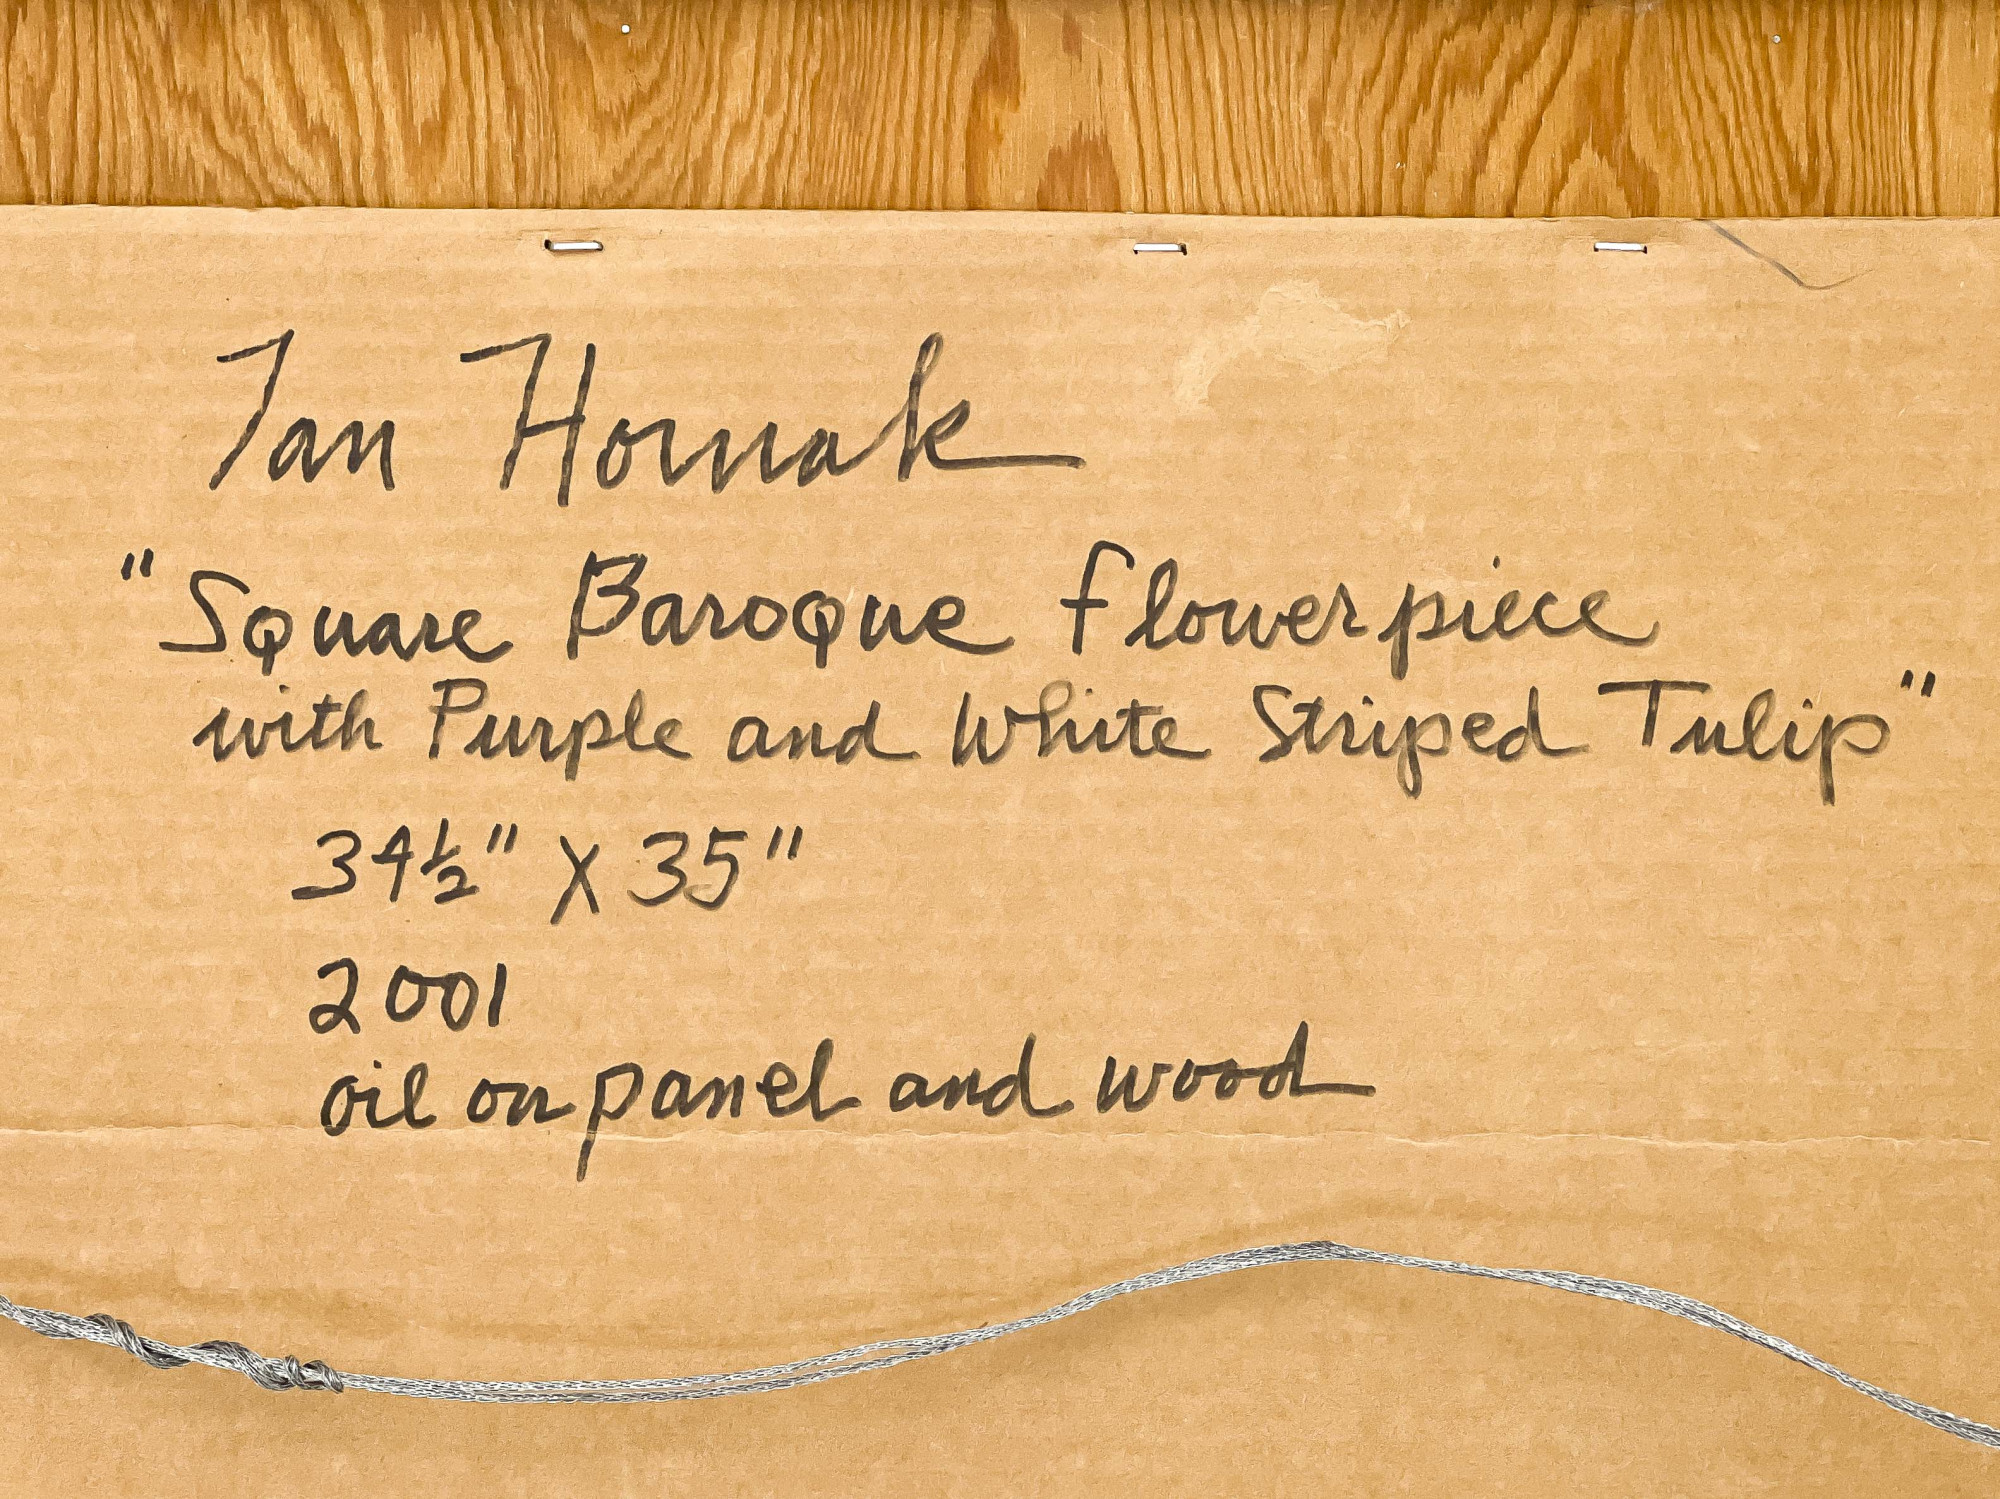 Ian Hornak
"Square Baroque Flowerpiece
with Purple and White Striped Tulip"
34½" X 35"
2001
oil on panel and wood